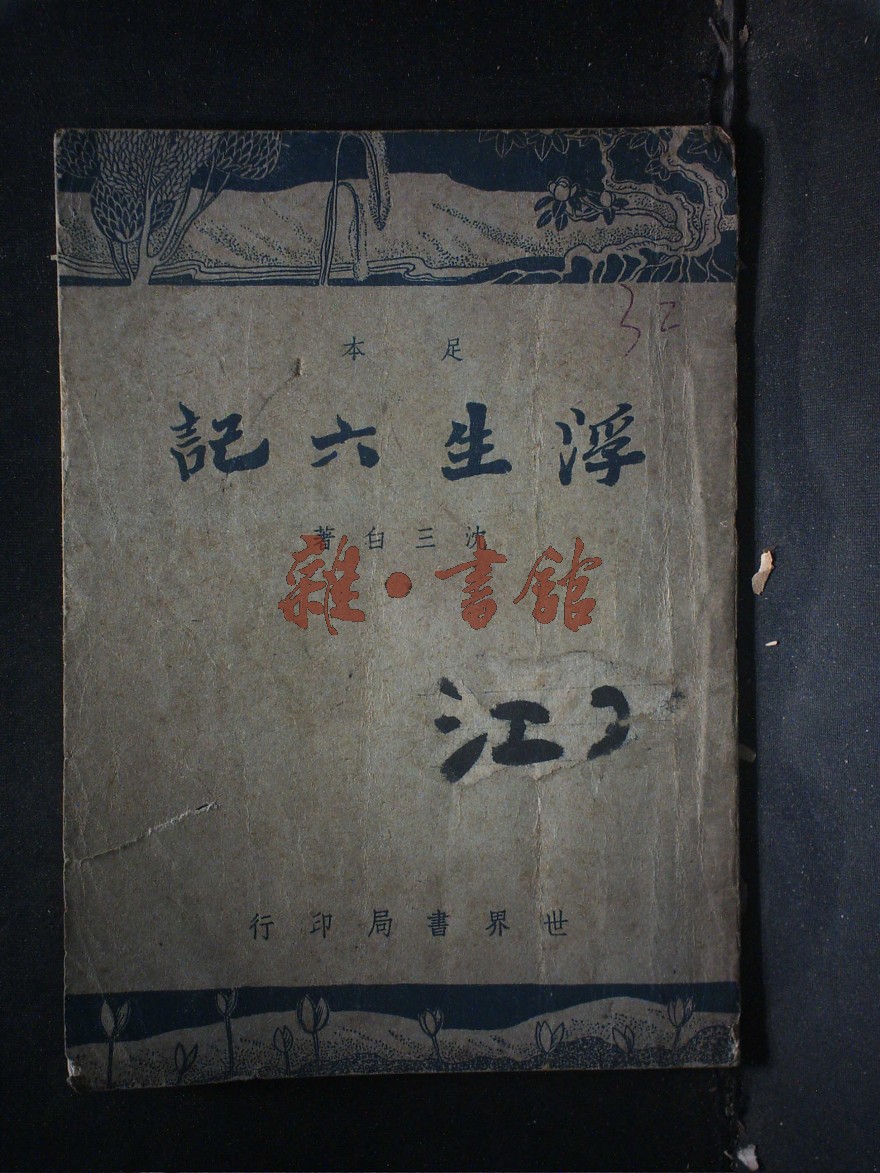 足本
浮生六記
沈三白著
雜·書館
江
世界書局印行